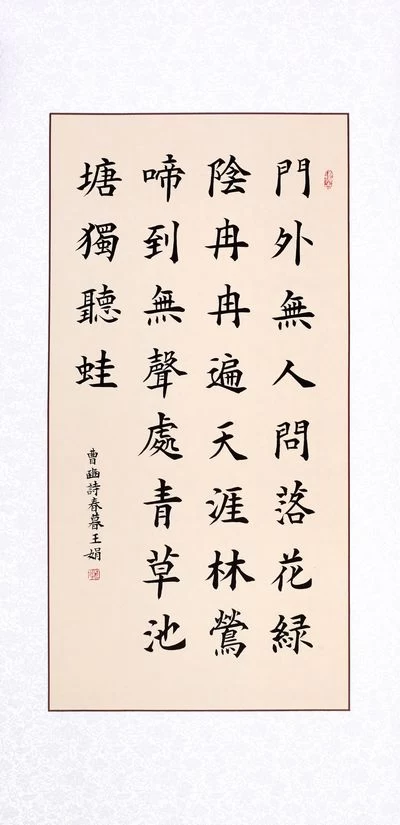 門外無人問落花綠
陰冉冉遍天涯林鶯
啼到無聲處青草池
塘獨聽蛙
曹豳詩春暮王娟